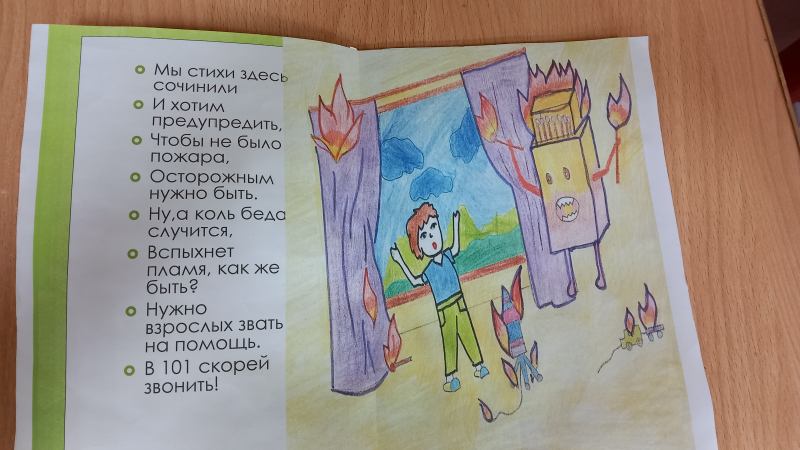 Мы стихи здесь
сочинили
И хотим
предупредить,
Чтобы не было
пожара,
Осторожным
нужно быть.
Ну,а коль беда
случится,
Вспыхнет
пламя, как же
быть?
Нужно
взрослых звать
на помощь.
В 101 скорей
звонить!